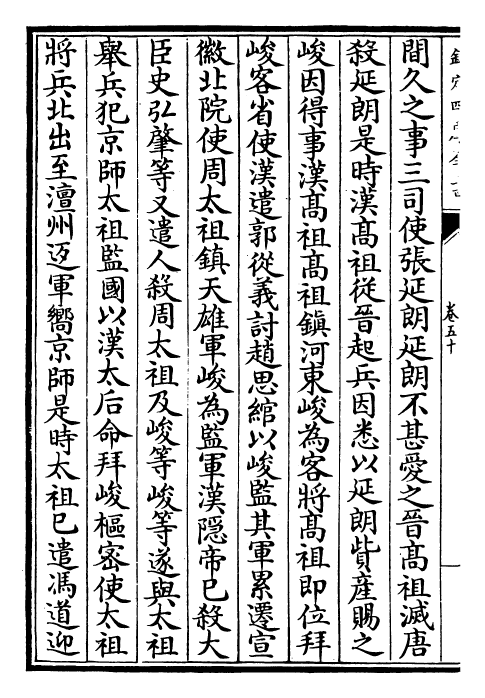 欽定四庫全書
卷五十
間久之事三司使張延朗延朗不甚愛之晉髙祖滅唐
殺延朗是時漢髙祖從晉起兵因悉以延朗貲産賜之
峻因得事漢髙祖髙祖鎮河東峻為客將髙祖即位拜
峻客省使漢遣郭從義討趙思綰以峻監其軍累遷宣
徽北院使周太祖鎮天雄軍峻為監軍漢隠帝已殺大
臣史弘肇等又遣人殺周太祖及峻等峻等遂與太祖
舉兵犯京師太祖監國以漢太后命拜峻樞宻使太祖
將兵北出至澶州返軍嚮京師是時太祖已遣馮道迎